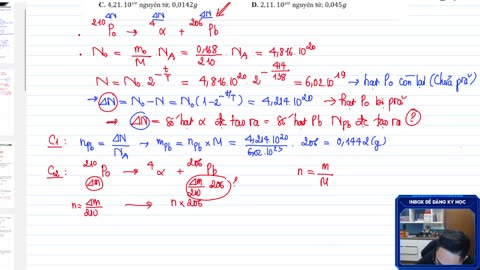 C. 4,21.10²⁰ nguyên tử; 0,0142g D. 2,11.10²⁰ nguyên tử; 0,045g
ΔN ΔN ΔN
²¹⁰Po → ⁴α + ²⁰⁶Pb
N₀ = m₀/M . N_A = 0,168/210 . N_A = 4,816.10²⁰
N = N₀ 2^(-t/T) = 4,816.10²⁰ 2^(-414/138) = 6,02.10¹⁹ → hạt Po còn lại (chưa prã)
→ ΔN = N₀ - N = N₀(1-2^(-t/T)) = 4,214.10²⁰ → hạt Po bị prã
→ ΔN = số hạt α đc tạo ra = số hạt Pb N_Pb đc tạo ra ?
C1: n_Pb = ΔN/N_A → m_Pb = n_Pb × M = 4,214.10²⁰/6,02.10²³ . 206 = 0,1442(g)
C2: ²¹⁰Po → ⁴α + ²⁰⁶Pb n = m/M
Δm Δm/210 . 206 ?
n = Δm/210 → n × 206
INBOX ĐỂ ĐĂNG KÝ HỌC